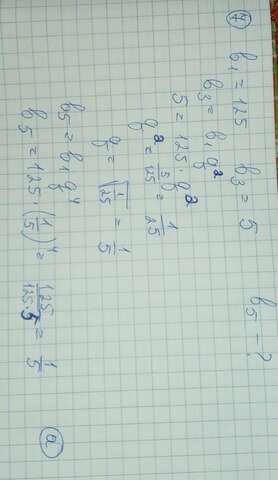 ④ b₁ = 125 b₃ = 5 b₅ - ?
b₃ = b₁q²
5 = 125 · q²
q² = 5/125 = 1/25
q = √(1/25) = 1/5
b₅ = b₁q⁴
b₅ = 125 · (1/5)⁴ = 125/(125·5) = 1/5
a